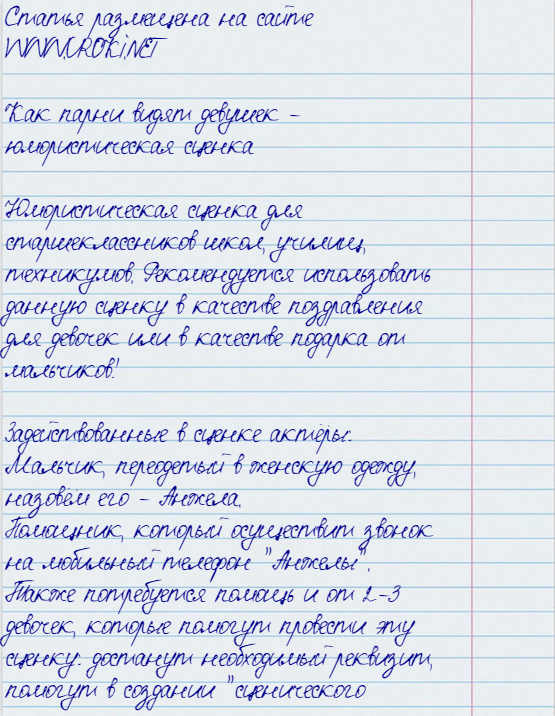 Статья размещена на сайте
WWW.UROKI.NET
Как парни видят девушек –
юмористическая сценка
Юмористическая сценка для
старшеклассников школ, училищ,
техникумов. Рекомендуется использовать
данную сценку в качестве поздравления
для девочек или в качестве подарка от
мальчиков!
Задействованные в сценке актёры:
Мальчик, переодетый в женскую одежду,
назовём его – Анжела.
Помощник, который осуществит звонок
на мобильный телефон "Анжелы".
Также потребуется помощь и от 2-3
девочек, которые помогут провести эту
сценку: достанут необходимый реквизит,
помогут в создании "сценического